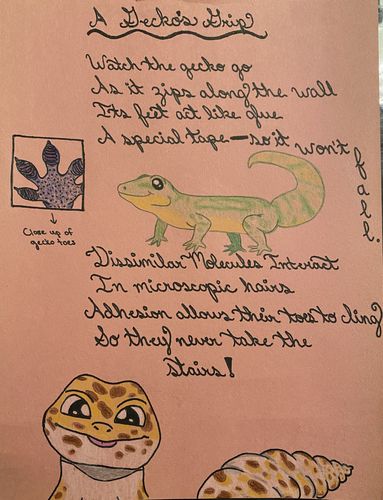 A Gecko's Grip
Watch the gecko go
As it zips along the wall
Its feet act like glue
A special tape—so it won't fall.
Close up of
gecko toes
Dissimilar Molecules Interact
In microscopic hairs
Adhesion allows their toes to cling
So they never take the
stairs!